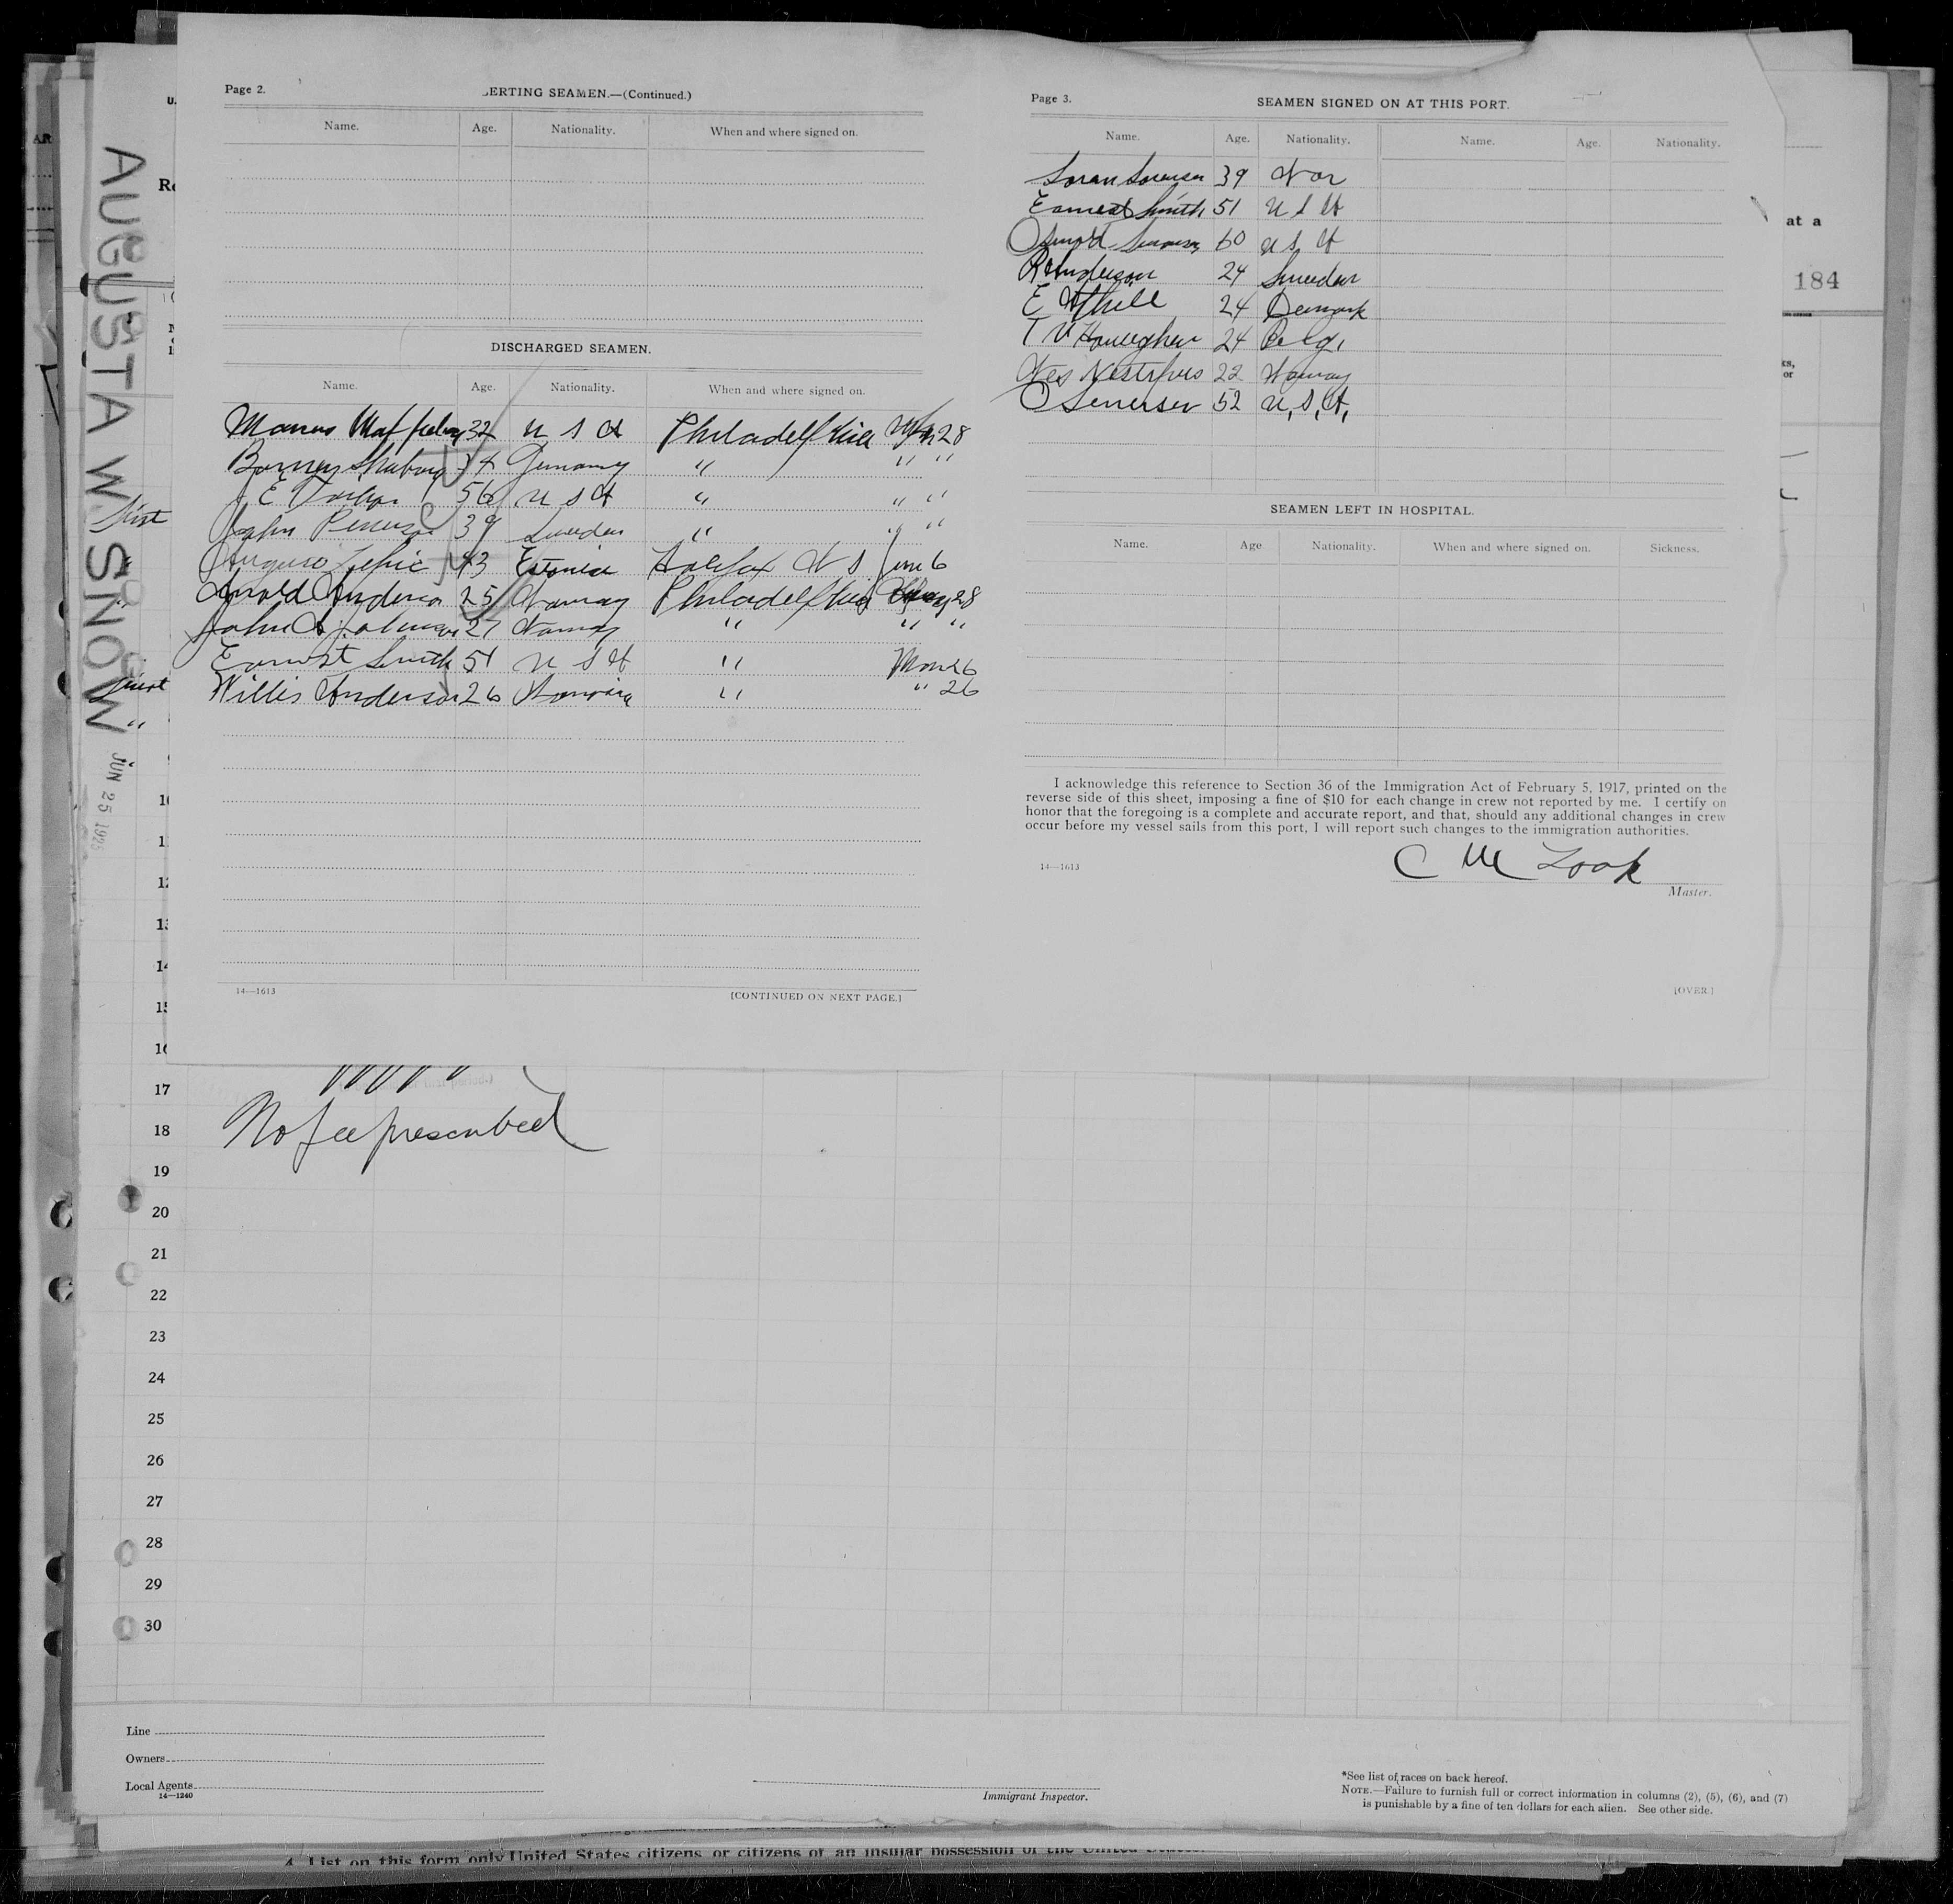 Page 2.
ERTING SEAMEN.—(Continued.)
Name. Age. Nationality. When and where signed on.
DISCHARGED SEAMEN.
Name. Age. Nationality. When and where signed on.
32 U S A Philadelphia 28
Barney Germany " " "
J E 56 U S A " " "
John 39 Sweden " " "
43 Estonia Halifax N S June 6
Arnold Anderson 25 Norway Philadelphia May 28
John A Johnson 27 Norway " " "
Earnest Smith 51 U S A " 26
Willis Anderson 26 " " 26
14—1613
[CONTINUED ON NEXT PAGE.]
Page 3.
SEAMEN SIGNED ON AT THIS PORT.
Name. Age. Nationality. Name. Age. Nationality.
Soren Sorensen 39 Nor
Earnest Smith 51 U S A
60 U S A
R Anderson 24 Sweden
E 24 Denmark
T V 24 Belg.
22 Norway
O 52 U.S.A.
SEAMEN LEFT IN HOSPITAL.
Name. Age Nationality. When and where signed on. Sickness.
I acknowledge this reference to Section 36 of the Immigration Act of February 5, 1917, printed on the
reverse side of this sheet, imposing a fine of $10 for each change in crew not reported by me. I certify on
honor that the foregoing is a complete and accurate report, and that, should any additional changes in crew
occur before my vessel sails from this port, I will report such changes to the immigration authorities.
14—1613
C M Look
Master.
[OVER.]
AUGUSTA W. SNOW
JUN 25 192
U.
AR
at a
184
or
No fee prescribed
17
18
19
20
21
22
23
24
25
26
27
28
29
30
Line
Owners
Local Agents
14—1240
Immigrant Inspector.
*See list of races on back hereof.
NOTE.—Failure to furnish full or correct information in columns (2), (5), (6), and (7)
is punishable by a fine of ten dollars for each alien. See other side.
4. List on this form only United States citizens or citizens of an insular possession of the United States.